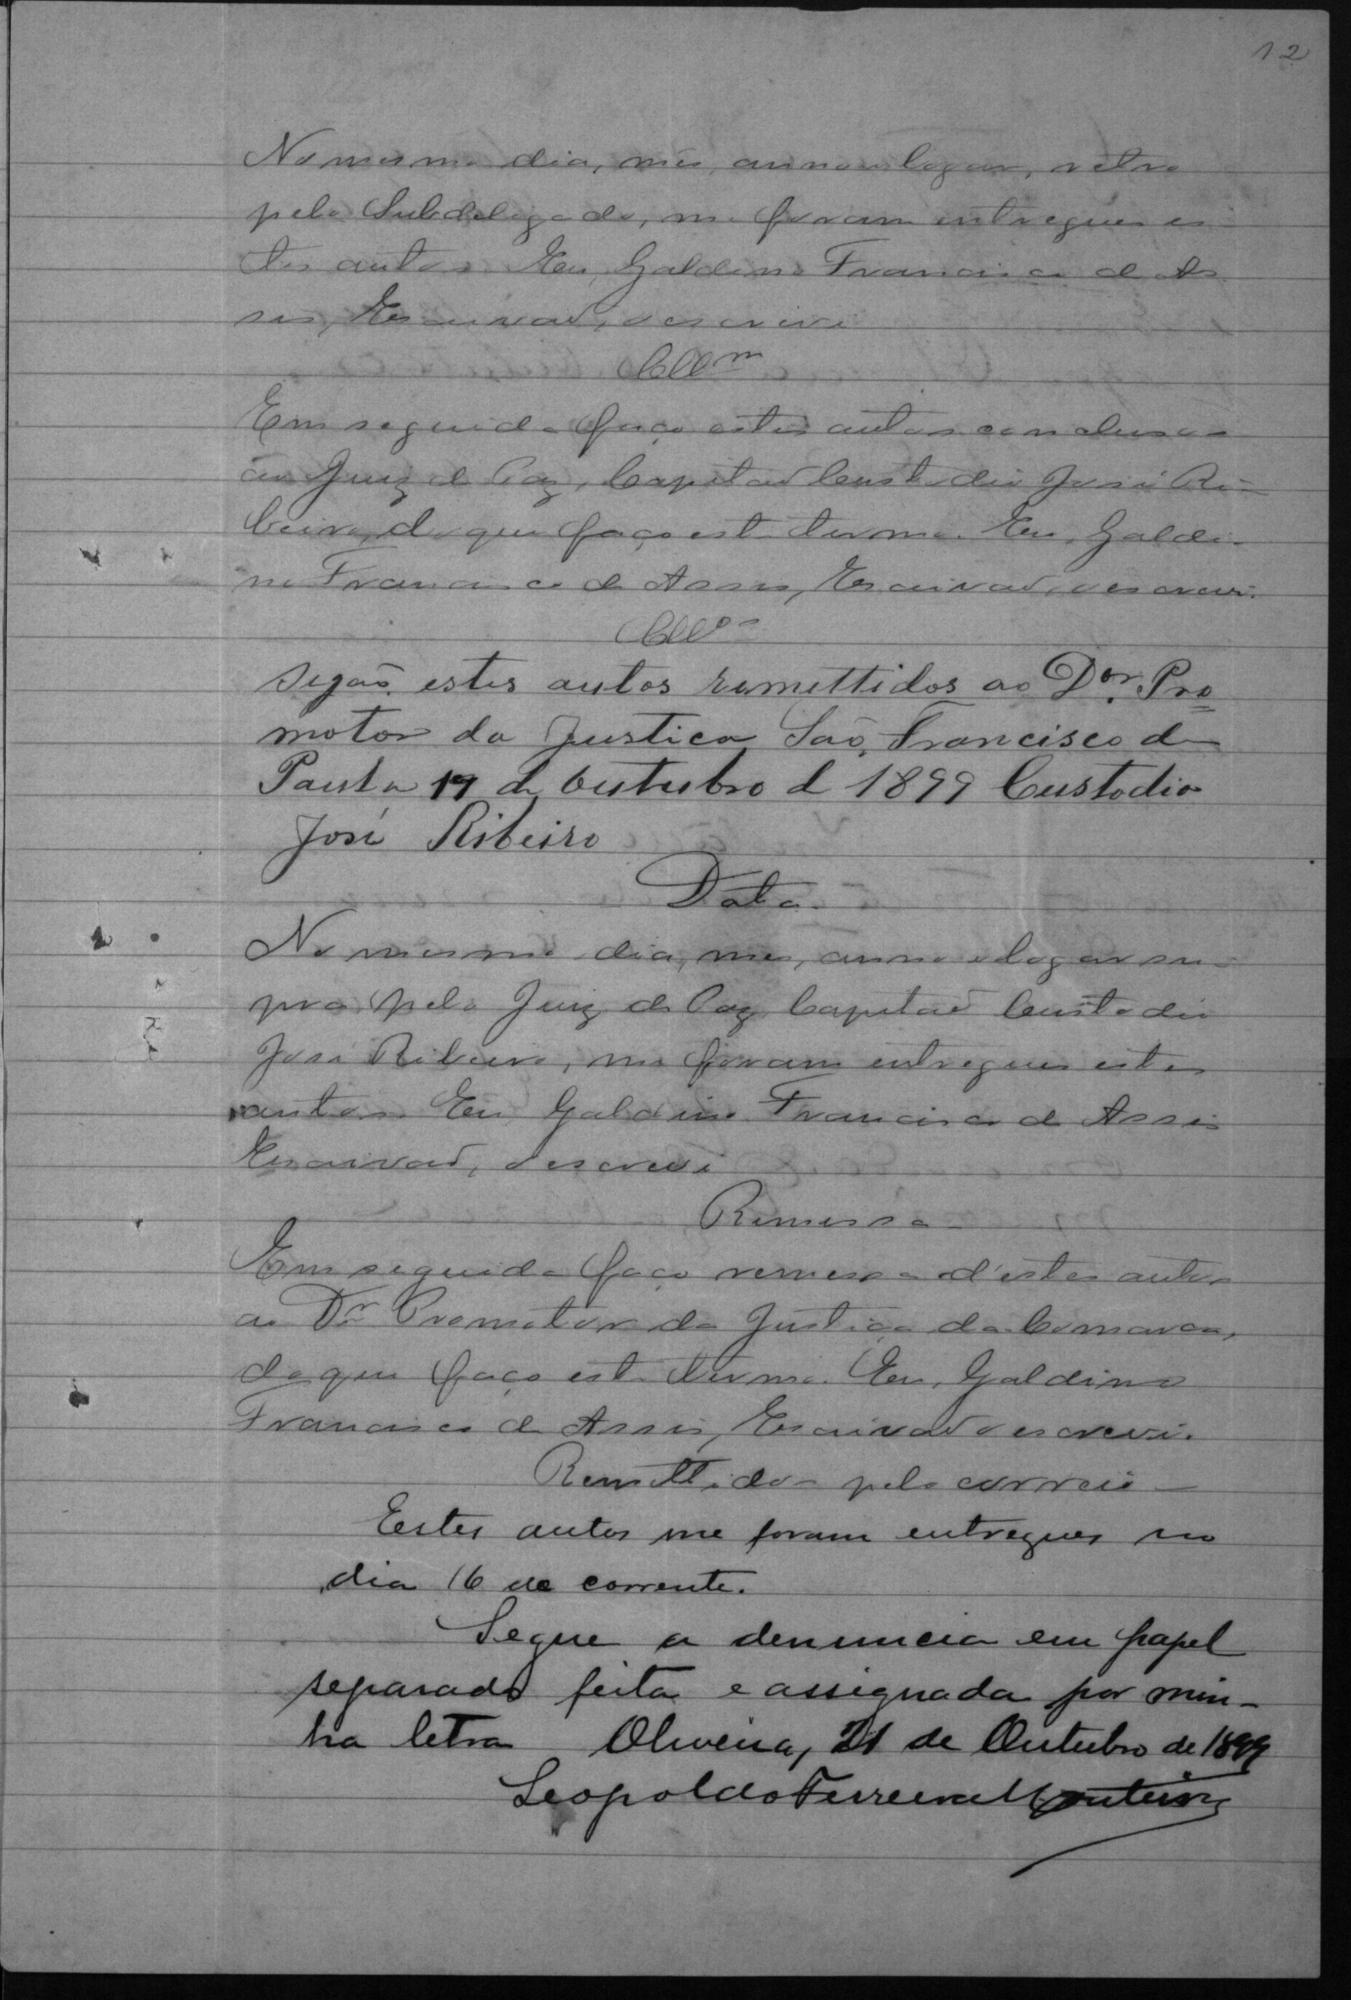 12
No mesmo dia, mes, anno e logar, retro
pelo Subdelegado, me foram entregues es
tes autos Eu, Galdino Francisco de As
sis, Escrivaõ, o escrevi
Cllm
Em seguida faço estes autos conclusos
ao Juiz de Paz, Capitaõ Custodio José Ri-
beiro, do que faço este termo. Eu, Galdi-
no Francisco de Assis, Escrivaõ, o escrevi.
Cllos
Segaõ estes autos remettidos ao Dor. Pro=
motor da Justica Saõ Francisco de
Paula 19 de Outubro d 1899 Custodio
José Ribeiro
Data
No mesmo dia, mes, anno e logar su-
pra pelo Juiz de Paz Capitaõ Custodio
José Ribeiro, me foram entregues estes
autos Eu Galdino Francisco de Assis
Escrivaõ, o escrevi
Remessa
Em seguida faço remessa d'estes autos
ao Dr Promotor da Justiça da Comarca,
do que faço este termo. Eu, Galdino
Francisco de Assis, Escrivaõ o escrevi.
Remettidos pelo correio
Estes autos me foram entregues no
dia 16 de corrente.
Segue a denuncia em papel
separado feita e assignada por min-
ha letra Oliveira, 21 de Outubro de 1899
Leopoldo Ferreira Monteiro